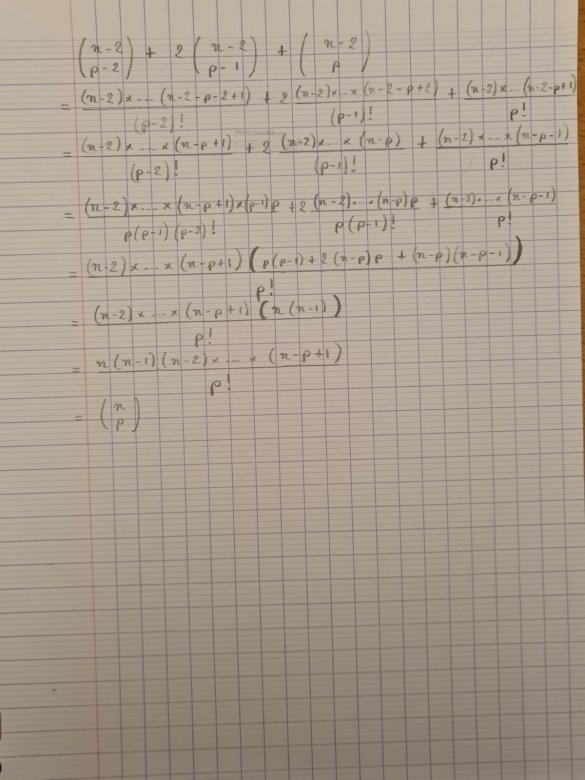 (n-2 p-2) + 2 (n-2 p-1) + (n-2 p)
= (n-2)×...(n-2-p-2+1)/(p-2)! + 2 (n-2)×...×(n-2-p+2)/(p-1)! + (n-2)×...(n-2-p+1)/p!
= (n-2)×...×(n-p+1)/(p-2)! + 2 (n-2)×...×(n-p)/(p-1)! + (n-2)×...×(n-p-1)/p!
= (n-2)×...×(n-p+1)×(p-1)p/p(p-1)(p-2)! + 2 (n-2)...(n-p)p/p(p-1)! + (n-2)...(n-p-1)/p!
= (n-2)×...×(n-p+1)(p(p-1)+2(n-p)p+(n-p)(n-p-1))/p!
= (n-2)×...×(n-p+1)(n(n-1))/p!
= n(n-1)(n-2)×...×(n-p+1)/p!
= (n p)